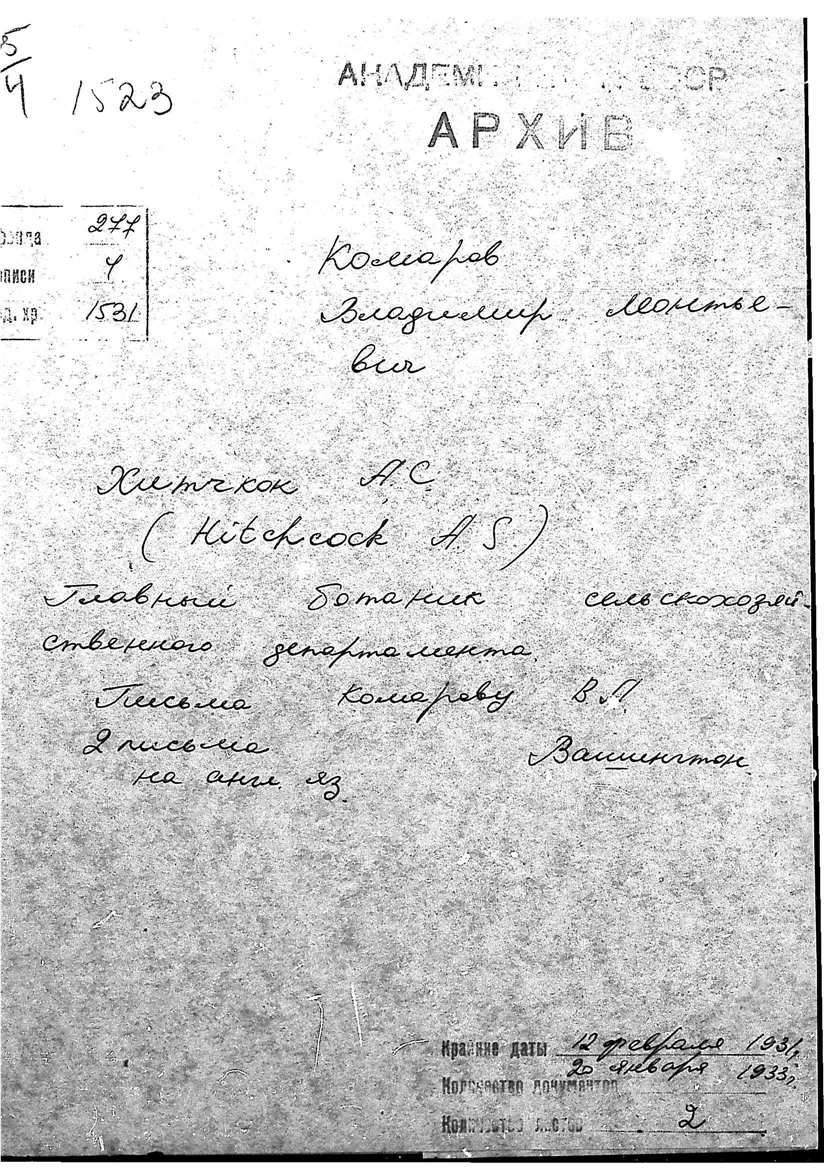 5/4 1523
АКАДЕМИ СССР
АРХИВ
фонда 277
описи 4
ед. хр. 1531
Комаров
Владимир Леонтье-
вич
Хитчкок А С.
( Hitchcock A. S. )
Главный ботаник сельскохозяй-
ственного департамента.
Письма Комарову В Л.
2 письма Вашингтон.
на англ. яз.
Крайние даты 12 февраля 1931,
20 января 1933г.
Количество документов
Количество листов 2